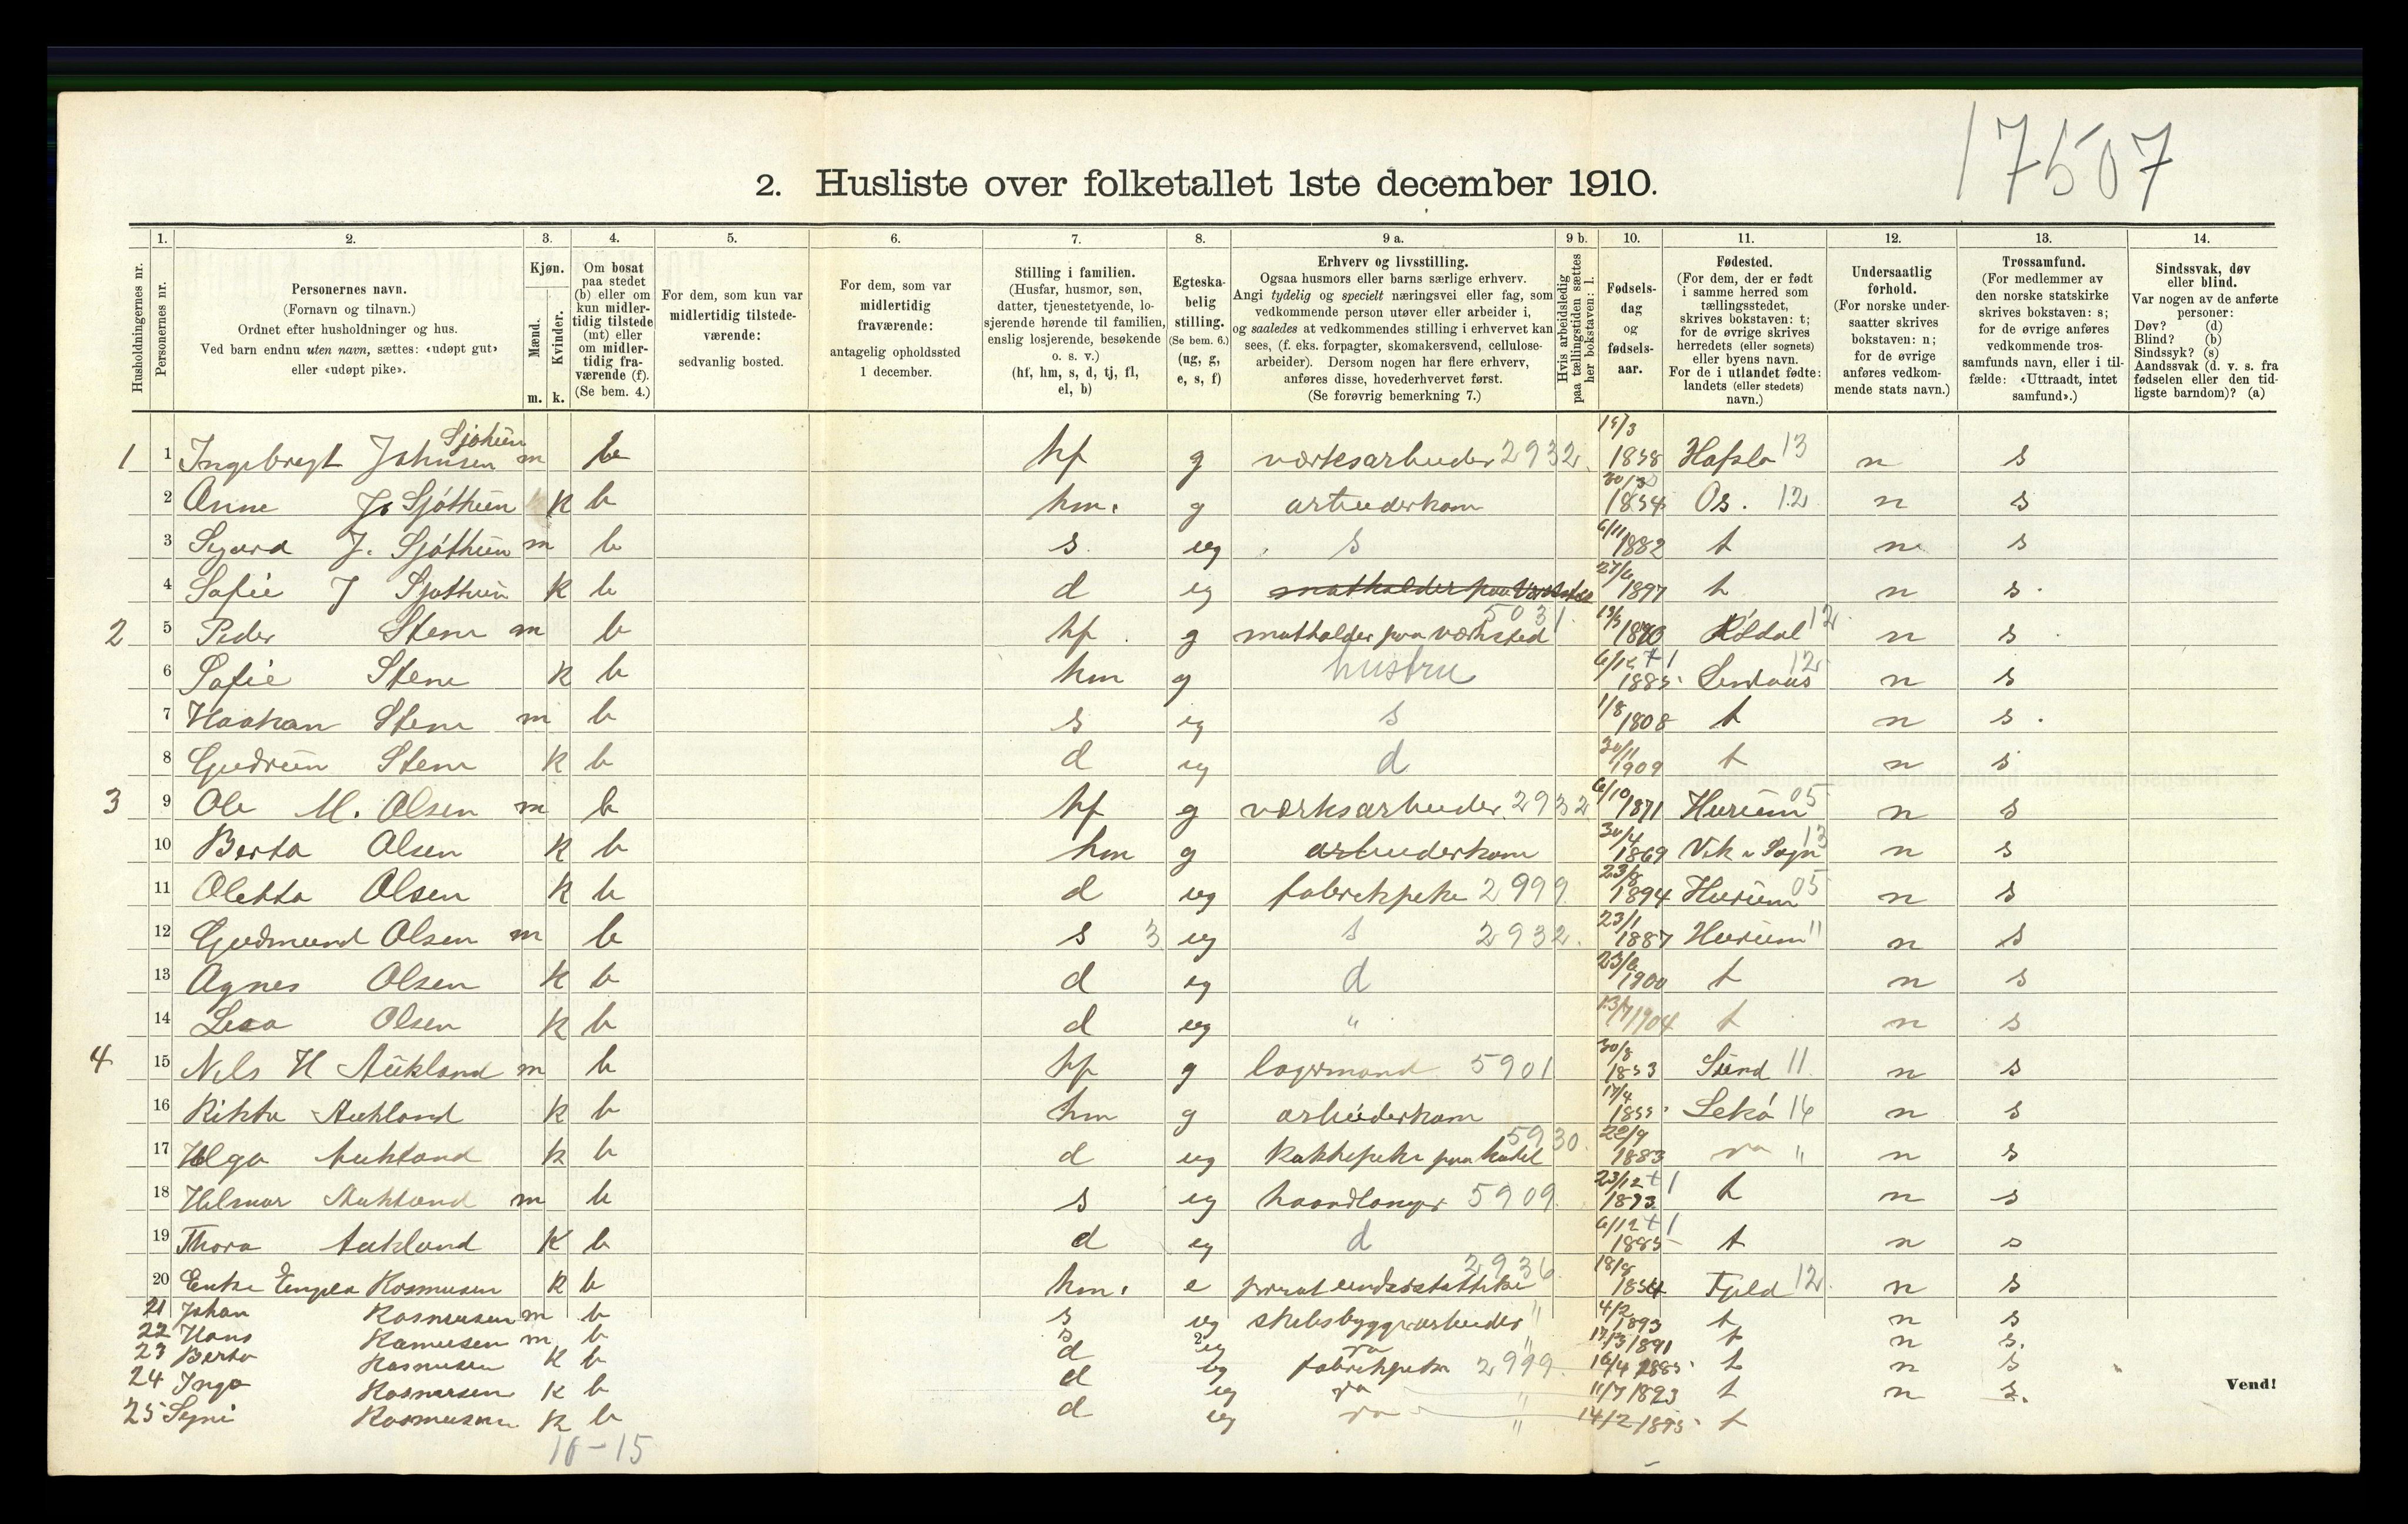 17507
2. Husliste over folketallet 1ste december 1910.
Husholdningernes nr.
1.
Personernes nr.
2.
Personernes navn.
(Fornavn og tilnavn.)
Ordnet efter husholdninger og hus.
Ved barn endnu uten navn, sættes: «udøpt gut»
eller «udøpt pike».
3.
Kjøn.
Mænd.
Kvinder.
m. k.
4.
Om bosat
paa stedet
(b) eller om
kun midler-
tidig tilstede
(mt) eller
om midler-
tidig fra-
værende (f).
(Se bem. 4.)
5.
For dem, som kun var
midlertidig tilstede-
værende:
sedvanlig bosted.
6.
For dem, som var
midlertidig
fraværende:
antagelig opholdssted
1 december.
7.
Stilling i familien.
(Husfar, husmor, søn,
datter, tjenestetyende, lo-
sjerende hørende til familien,
enslig losjerende, besøkende
o. s. v.)
(hf, hm, s, d, tj, fl,
el, b)
8.
Egteska-
belig
stilling.
(Se bem. 6.)
(ug, g,
e, s, f)
9 a.
Erhverv og livsstilling.
Ogsaa husmors eller barns særlige erhverv.
Angi tydelig og specielt næringsvei eller fag, som
vedkommende person utøver eller arbeider i,
og saaledes at vedkommendes stilling i erhvervet kan
sees, (f. eks. forpagter, skomakersvend, cellulose-
arbeider). Dersom nogen har flere erhverv,
anføres disse, hovederhvervet først.
(Se forøvrig bemerkning 7.)
9 b.
Hvis arbeidsledig
paa tællingstiden sættes
her bokstaven: l.
10.
Fødsels-
dag
og
fødsels-
aar.
11.
Fødested.
(For dem, der er født
i samme herred som
tællingsstedet,
skrives bokstaven: t;
for de øvrige skrives
herredets (eller sognets)
eller byens navn.
For de i utlandet fødte:
landets (eller stedets)
navn.)
12.
Undersaatlig
forhold.
(For norske under-
saatter skrives
bokstaven: n;
for de øvrige
anføres vedkom-
mende stats navn.)
13.
Trossamfund.
(For medlemmer av
den norske statskirke
skrives bokstaven: s;
for de øvrige anføres
vedkommende tros-
samfunds navn, eller i til-
fælde: «Uttraadt, intet
samfund».)
14.
Sindssvak, døv
eller blind.
Var nogen av de anførte
personer:
Døv? (d)
Blind? (b)
Sindssyk? (s)
Aandssvak (d. v. s. fra
fødselen eller den tid-
ligste barndom)? (a)
1 1 Ingebregt Johnsen m b hf g værksarbeider 2932 1858 Hafslo 13 n s
2 Anne J. Sjøthun k b hm. g arbeiderkone 1854 Os. 12 n s
3 J. Sjøthun m b s ug s 6/11 1882 t n s
4 Sofie J Sjøthun k b d ug 1897 t n s
2 5 Peder Stene m b hf g matholder paa værksted 5031 12 n s
6 Sofie Stene k b hm g hustru 6/12 +1 1885 12 n s
7 Haakon Stene m b s ug s 1/8 1808 t n s
8 Gudrun Stene k b d ug d 1909 t n s
3 9 Ole M. Olsen m b hf g værksarbeider 2932 6/10 1871 Hurum 05 n s
10 Berta Olsen k b hm g arbeiderkone 30/4 1869 Vik i Sogn 13 n s
11 Oletta Olsen k b d ug fabrikpike 2999 23/8 1894 Hurum 05 n s
12 Gudmund Olsen m b s 3 ug s 2932. 23/1 1887 Hurum " n s
13 Agnes Olsen k b d ug d 1900 t n s
14 Olsen k b d ug " 13/7 1904 t n s
4 15 Nils H Aukland m b hf g lagermand 5901 30/8 1853 Sund 11 n s
16 Aukland k b hm g arbeiderkone 17/4 1855 Lekö n s
17 Helga Aukland k b d ug kokkepike paa hotel 5930. 1883 " n s
18 Hilmar Aukland m b s ug haandlanger 5909. 23/12 +1 1893 t n s
19 Thora Aukland k b d ug d 6/12 +1 1885 t n s
20 Enke Rasmusen k b hm. e 2936 18/8 1854 Fjeld 12. n s
21 Johan Rasmusen m b s ug skibsbyggerarbeider " 4/2 1893 t n s
22 Hans Ramusen m b s ug " 1891 t n s.
23 Berta Rasmusen k b d ug fabrikpike 2999. 16/4 1885 t n s
24 Inga Rasmusen k b d ug " 11/7 1893 t n s.
25 Rasmusen k b d ug " 14/2 1895 t
Vend!